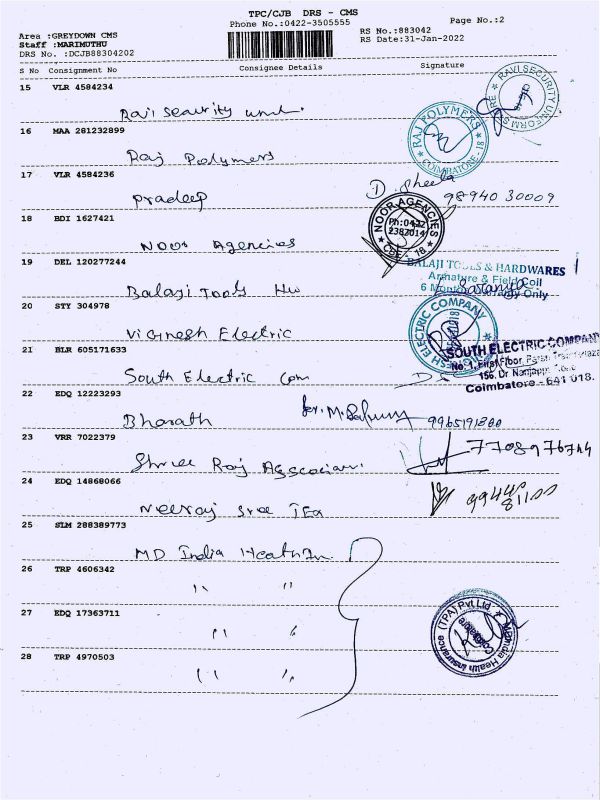 TPC/CJB DRS - CMS
Phone No.:0422-3505555
Page No.:2
Area :GREYDOWN CMS
Staff :MARIMUTHU
DRS No. :DCJB88304202
RS No.:883042
RS Date:31-Jan-2022
S No Consignment No Consignee Details Signature
15 VLR 4584234
Ravi Security Unif.
RAVI SECURITY UNIFORM STORE
16 MAA 281232899
Raj Polymers
RAJ POLYMERS COIMBATORE - 18
17 VLR 4584236
Pradeep
D. Sheela
98940 30009
18 BDI 1627421
Noor Agencies
NOOR AGENCIES
Ph:0422
2382014
CBE - 18
19 DEL 120277244
Balaji Tools Hw
BALAJI TOOLS & HARDWARES
Armature & Field Coil
6 Months Warranty Only
20 STY 304978
Vignesh Electric
ELECTRIC COMPANY
21 BLR 605171633
South Electric Com
SOUTH ELECTRIC COMPANY
No: 1, First Floor,
156, Dr Nanjappa Road
Coimbatore - 641 018.
22 EDQ 12223293
Bharath
9965191800
23 VRR 7022379
Shree Raj Asscocian
7708976744
24 EDQ 14868066
Neeraj Sree TEa
99445
81100
25 SLM 288389773
MD India Heath In.
26 TRP 4606342
" "
27 EDQ 17363711
" "
28 TRP 4970503
" "
MDIndia Health Insurance (TPA) Pvt Ltd
Coimbatore